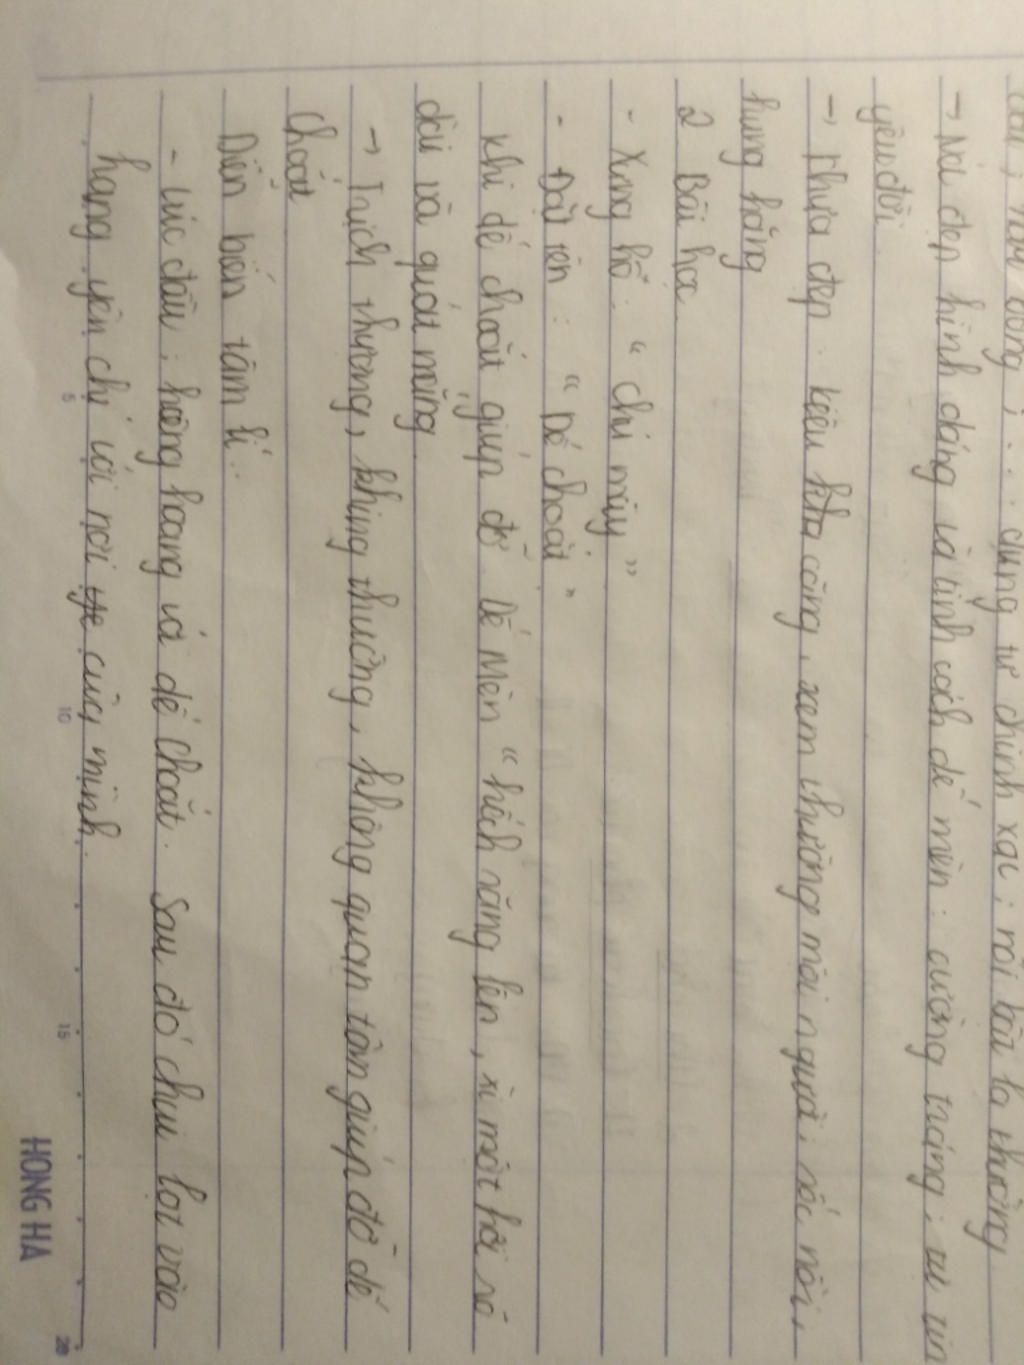 động ; ... dùng từ chính xác ; rồi bài la thường
→ Nét đẹp hình dáng và tính cách dế mèn : cường tráng ; tự tin
yêu đời.
→ Chưa đẹp : kiêu căng, xem thường mọi người ; sốc nổi,
hung hăng
2 Bài học
- Xưng hô : " chú mày "
- Đặt tên : " Dế choắt "
Khi dế choắt giúp đỡ Dế Mèn " hếch răng lên, xì một hơi rõ
dài và quát mắng
→ Trịch thượng, khing thường, không quan tâm giúp đỡ dế
Choắt
Diễn biến tâm lí :
- Lúc đầu : huênh hoang với dế choắt. Sau đó chui tọt vào
hang yên chí với nơi của mình.
5
10
15
20
HONG HA